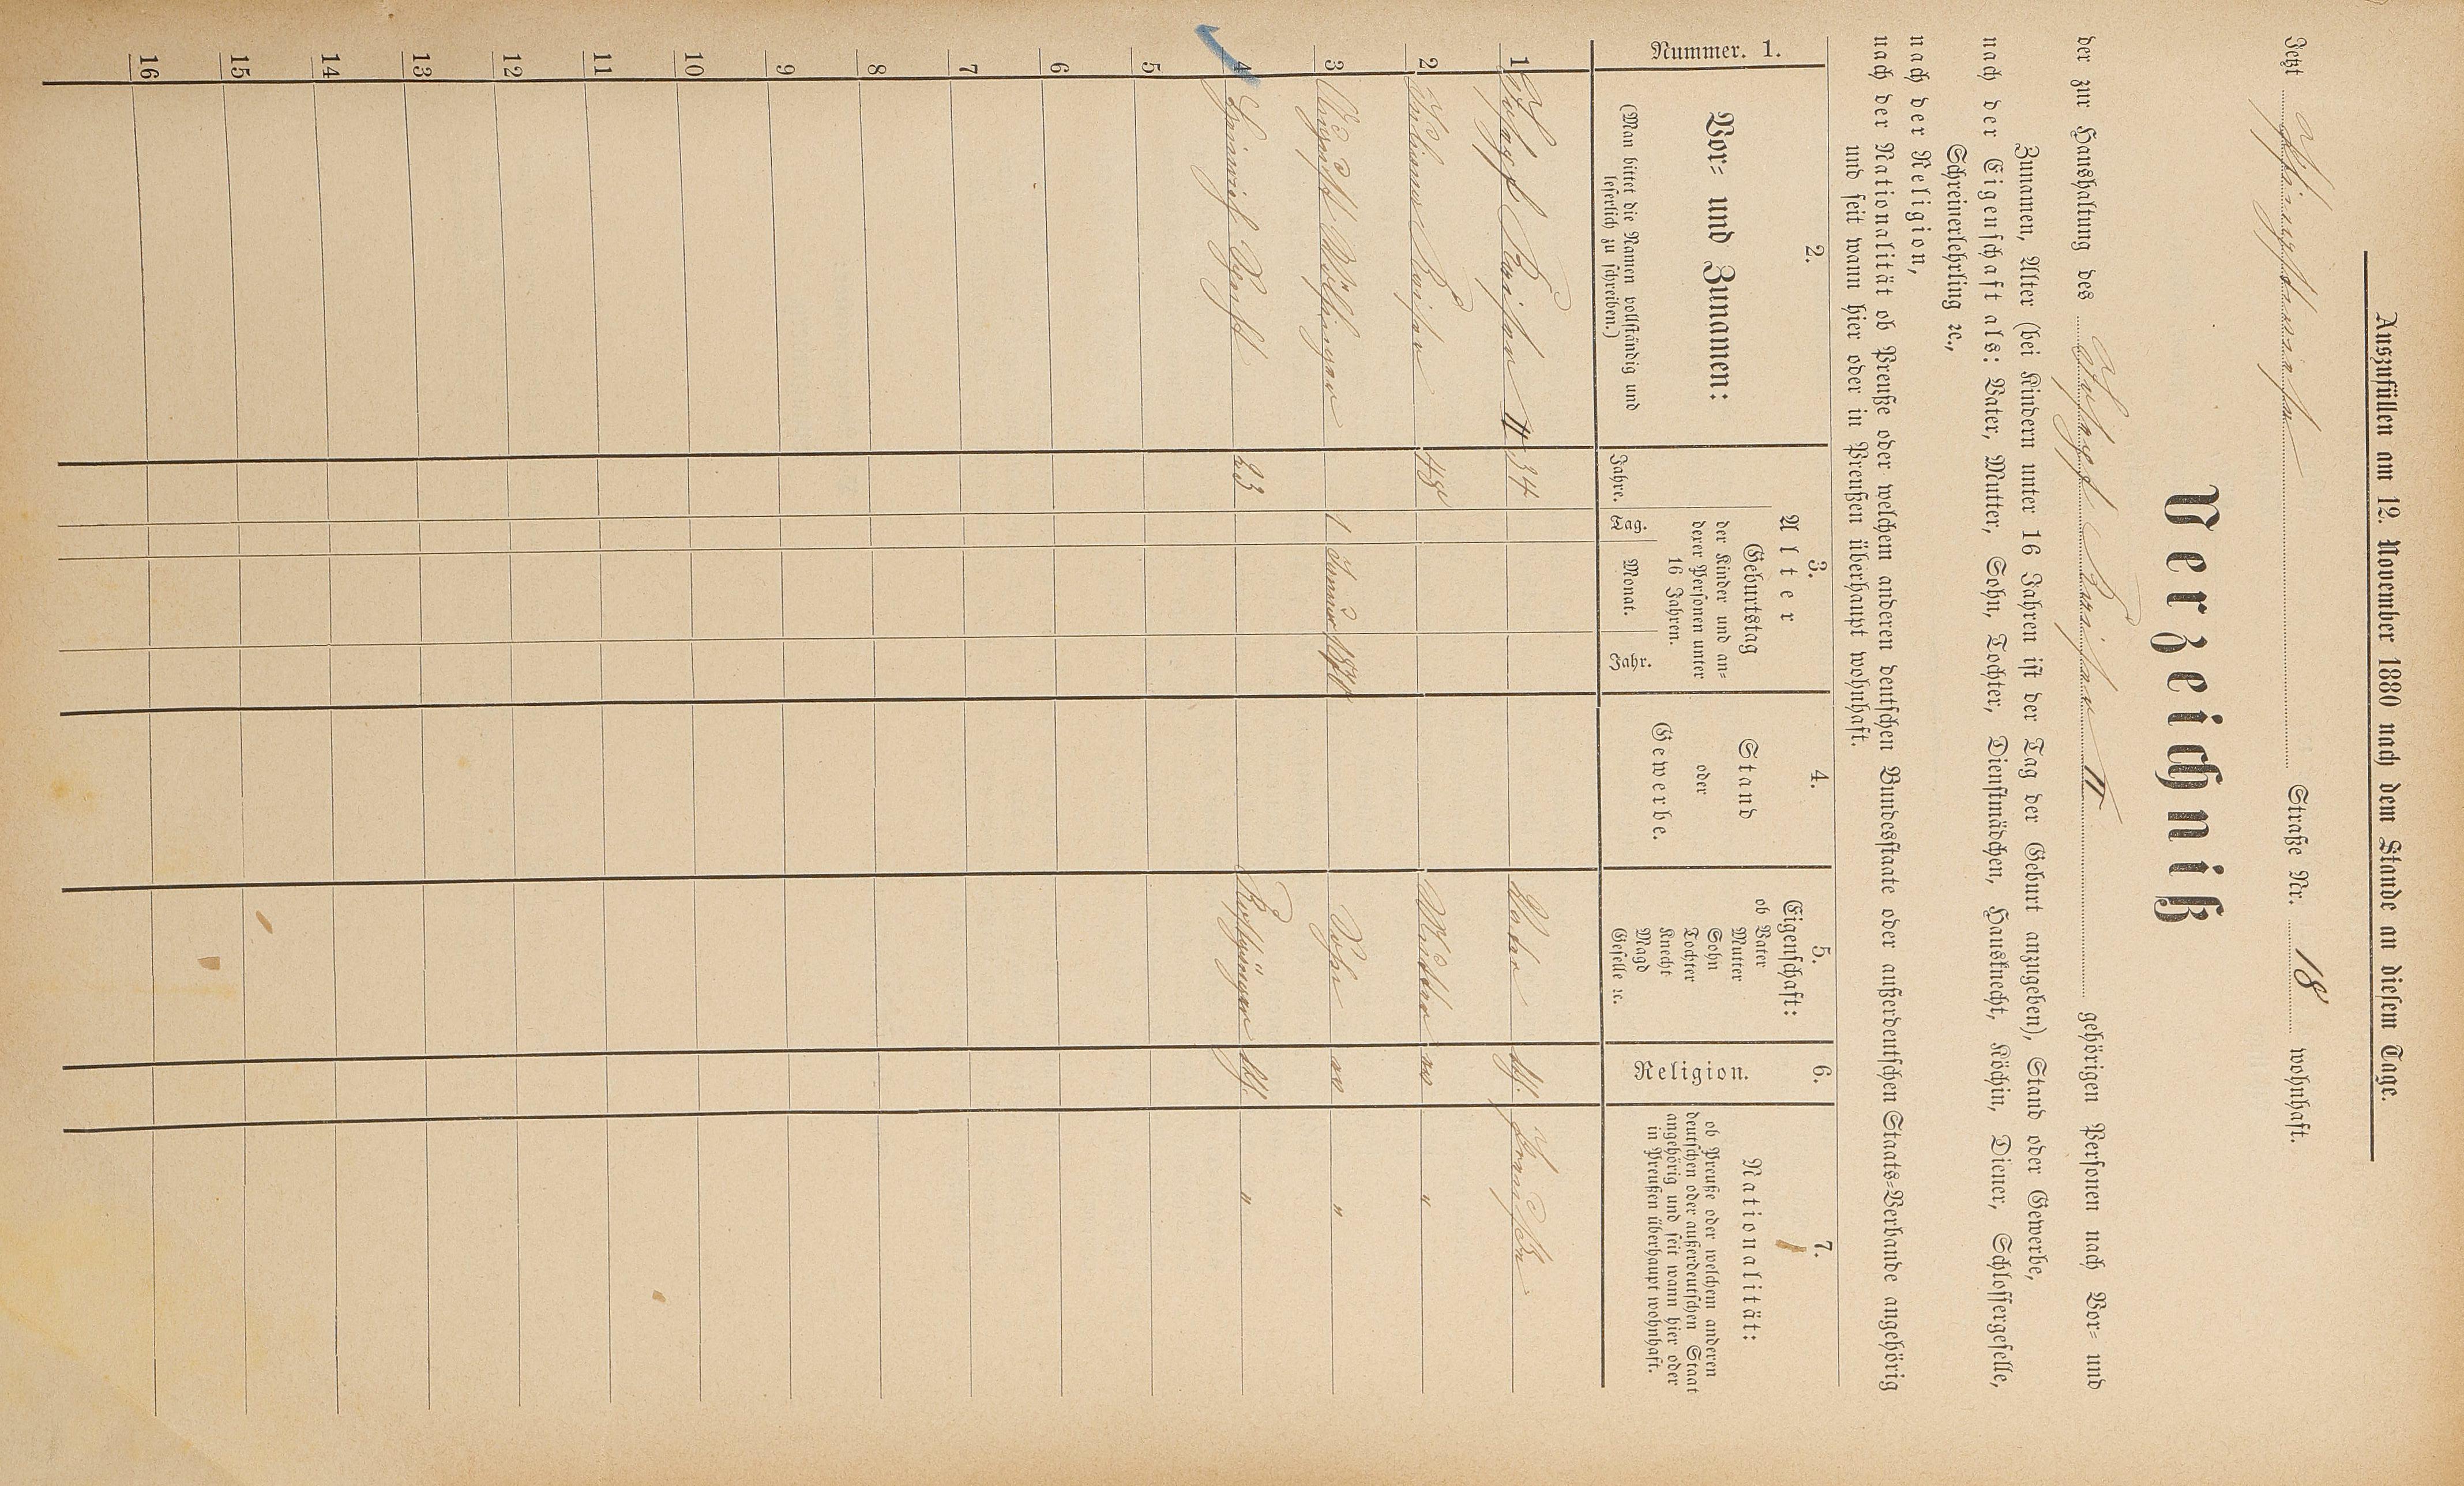 Auszufüllen am 12. November 1880 nach dem Stande an diesem Tage.
Jetzt Straße Nr. 18 wohnhaft.
Verzeichniß
der zur Haushaltung des Joseph Kaiser II gehörigen Personen nach Vor= und
Zunamen, Alter (bei Kindern unter 16 Jahren ist der Tag der Geburt anzugeben), Stand oder Gewerbe,
nach der Eigenschaft als: Vater, Mutter, Sohn, Tochter, Dienstmädchen, Hausknecht, Köchin, Diener, Schlossergeselle,
Schreinerlehrling ꝛc.,
nach der Religion,
nach der Nationalität ob Preuße oder welchem anderen deutschen Bundesstaate oder außerdeutschen Staats=Verbande angehörig
und seit wann hier oder in Preußen überhaupt wohnhaft.
Nummer. 1.
2.
Vor= und Zunamen:
(Man bittet die Namen vollständig und
leserlich zu schreiben.)
3.
Alter
Jahre.
Geburtstag
der Kinder und an=
derer Personen unter
16 Jahren.
Tag. Monat. Jahr.
4.
Stand
oder
Gewerbe.
5.
Eigenschaft:
ob Vater
Mutter
Sohn
Tochter
Knecht
Magd
Geselle ꝛc.
6.
Religion.
7.
Nationalität:
ob Preuße oder welchem anderen
deutschen oder außerdeutschen Staat
angehörig und seit wann hier oder
in Preußen überhaupt wohnhaft.
1 Joseph Kaiser II 34 Vater kth. Preuße
2 Kaiser 48 Mutter "
3 1 Januar Sohn "
4 Heinrich 23 kth. "
5
6
7
8
9
10
11
12
13
14
15
16